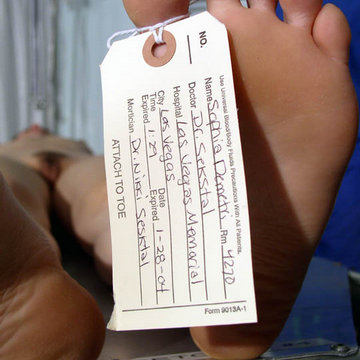 NO.
Use Universal Blood/Body Fluids Precautions With All Patients.
Name Sophia Demetri Rm 4270
Doctor Dr. Sekstal
Hospital Las Vegas Memorial
City Las Vegas Date
Time 1:29 Expired 1-28-04
Expired
Mortician Dr. Nikki Sesktal
ATTACH TO TOE
Form 9013A-1